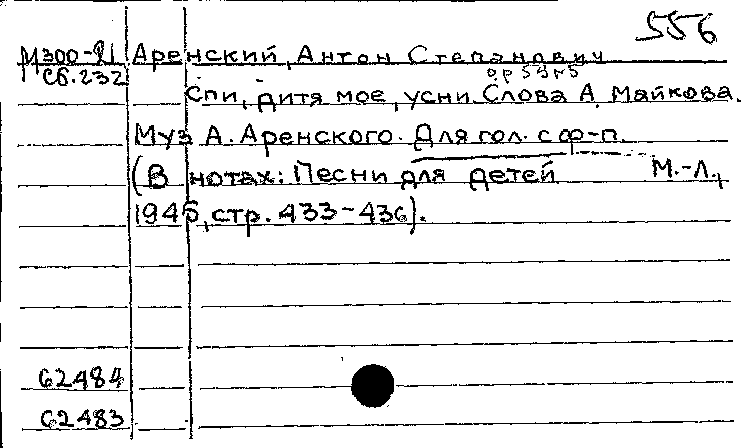 556
М300-91 Аренский, Антон Степанович
Сб.232
ор 59 №5
Спи, дитя мое, усни. Слова А. Майкова.
Муз А. Аренского. Для гол. с ф-п.
(В нотах: Песни для детей М.-Л.,
1945, стр. 433-436).
62484
62483